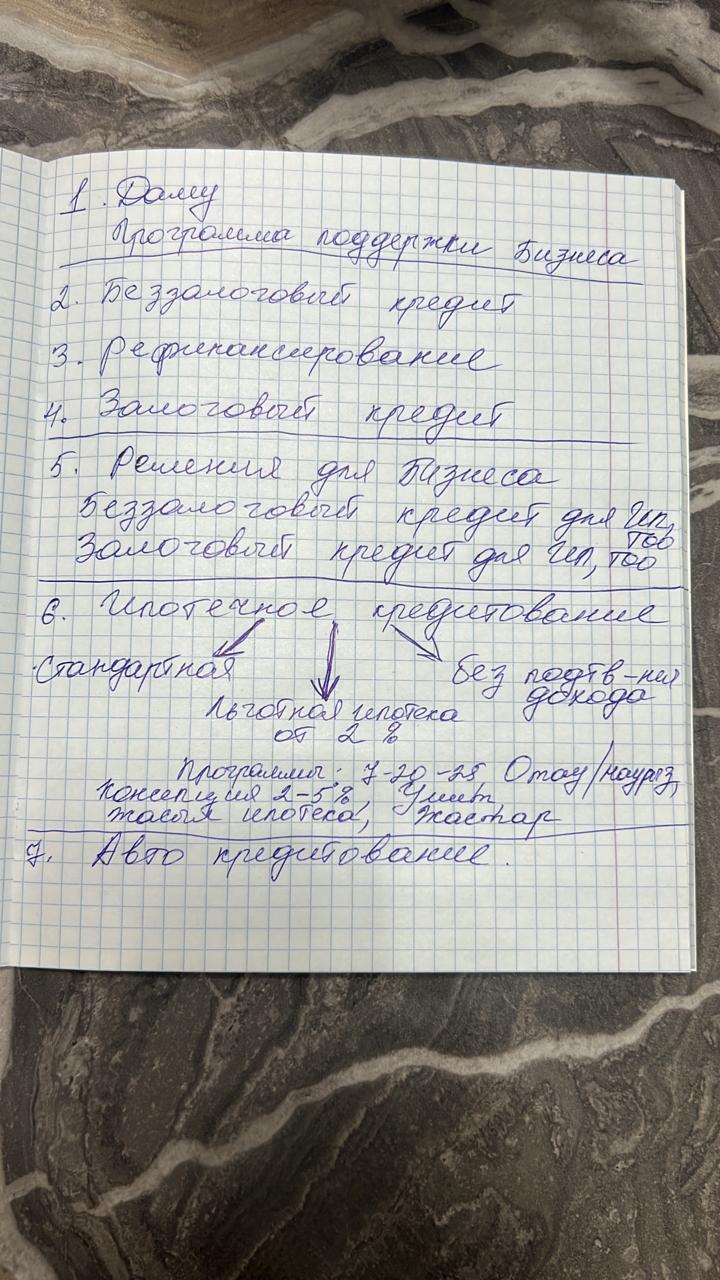 1. Даму
Программа поддержки Бизнеса
2. Беззалоговый кредит
3. Рефинансирование
4. Залоговый кредит
5. Решения для Бизнеса
Беззалоговый кредит для ИП, ТОО
Залоговый кредит для ИП, ТОО
6. Ипотечное кредитование
Стандартная
без подтв-ния дохода
Льготная ипотека
от 2 %
Программы: 7-20-25, Отау/наурыз,
Концепция 2-5%, Умит,
жасыл ипотека, Жастар
7. Авто кредитование.